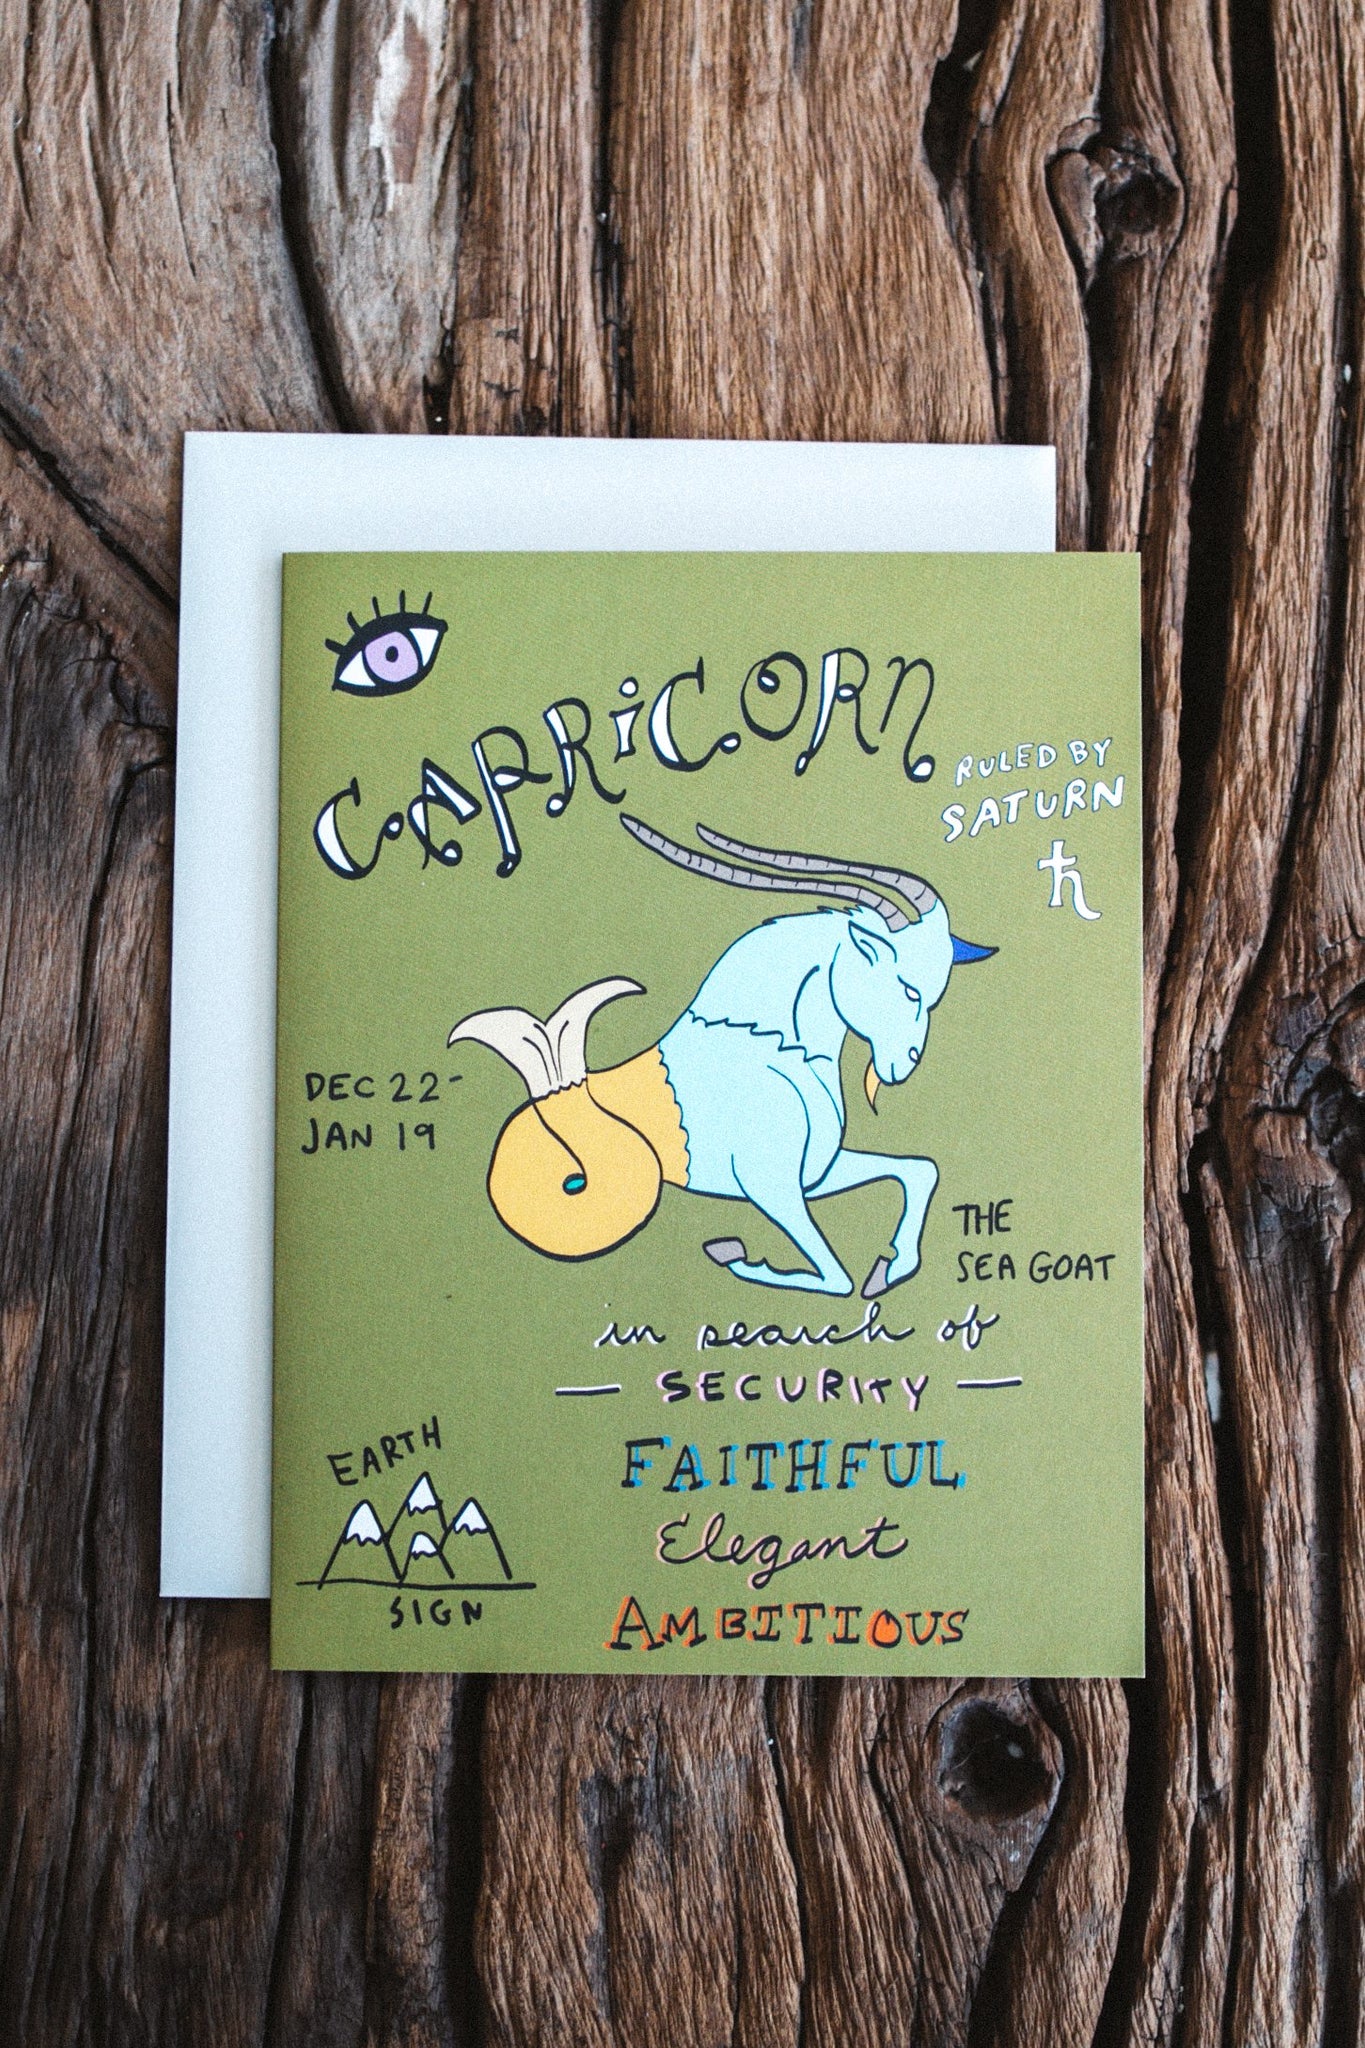 CAPRiCORn
RULED BY
SATURN
♄
DEC 22-
JAN 19
THE
SEA GOAT
in search of
— SECURITY —
FAITHFUL
Elegant
AMBITIOUS
EARTH
SIGN